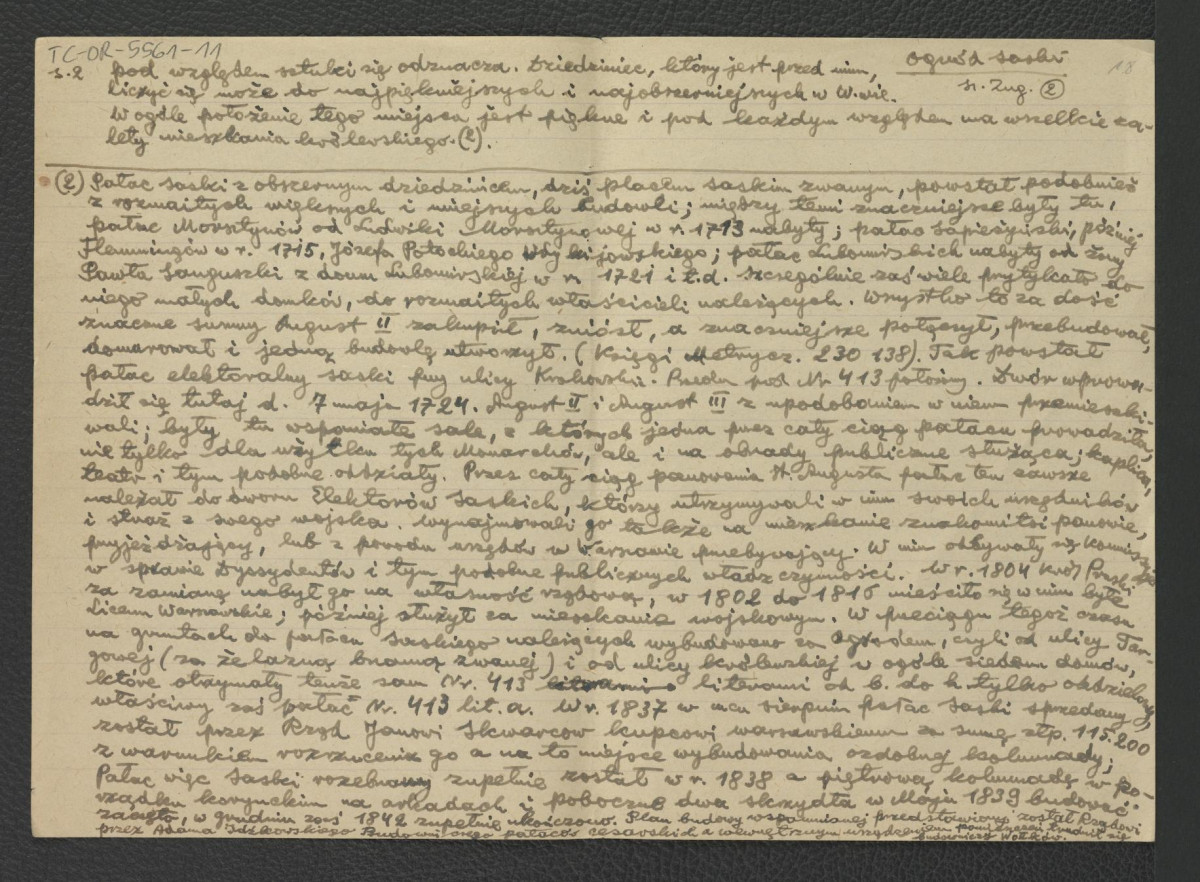 TC-OR-5561-11
Ogród saski
18
s. 2 pod względem sztuki się odznacza. Dziedziniec, który jest przed nim,
s. Zug. (2)
liczyć się może do najpiękniejszych i najobszerniejszych w W.wie.
W ogóle położenie tego miejsca jest piękne i pod każdym względem ma wszelkie za-
lety mieszkania królewskiego. (2).
(2) Pałac saski z obszernym dziedzińcem, dziś placem saskim zwanym, powstał podobnież
z rozmaitych większych i mniejszych budowli; między temi znaczniejsze były tu,
pałac Morsztynów od Ludwiki Morsztynowej w r. 1713 nabyty; pałac Sapieżyński, później
Flemmingów w r. 1715, Józefa Potockiego Wdy kijowskiego; pałac Lubomirskich nabyty od żony
Pawła Sanguszki z domu Lubomirskiej w r. 1721 i t.d. Szczególnie zaś wiele przytykało do
niego małych domków, do rozmaitych właścicieli należących. Wszystko to za dość
znaczne summy August II zakupił, zniósł, a znaczniejsze połączył, przebudował,
domurował i jedną budowlę utworzył. (Księgi Metrycz. 230 138). Tak powstał
pałac elektoralny saski przy ulicy Krakowskie-Przedm pod Nr 413 położony. Dwór wprowa-
dził się tutaj d. 7 maja 1724. August II i August III z upodobaniem w niem przemieszki-
wali; były tu wspaniałe sale, z których jedna przez cały ciąg pałacu prowadziła,
nie tylko dla użytku tych Monarchów, ale i na obrady publiczne służąca; kaplica,
teatr i tym podobne oddziały. Przez cały ciąg panowania St. Augusta pałac ten zawsze
należał do dworu Elektorów Saskich, którzy utrzymywali w nim swoich urzędników
i straż z swego wojska. Wynajmowali go także na mieszkanie znakomitsi panowie,
przyjeżdżający, lub z powodu urzędów w Warszawie przebywający. W nim odbywały się Komissje
w sprawie Dyssydentów i tym podobne publicznych władz czynności. W r. 1804 Król Pruski
za zamianę nabył go na własność rządową, w 1802 do 1816 mieściło się w nim byłe
Liceum Warszawskie; później służył za mieszkanie wojskowym. W przeciągu tegoż czasu
na gruntach do pałacu Saskiego należących wybudowano za ogrodem, czyli od ulicy Tar-
gowej (za żelazną bramą zwanej) i od ulicy królewskiej w ogóle siedem domów,
które otrzymały tenże sam Nr. 413 literami od b. do h. tylko oddzielone,
właściwy zaś pałac Nr. 413 lit. a. W r. 1837 w mcu sierpniu pałac Saski sprzedany
został przez Rząd Janowi Skwarcow kupcowi warszawskiemu za sumę złp. 115.200
z warunkiem rozrzucenia go a na to miejsce wybudowania ozdobnej kolumnady;
Pałac więc Saski rozebrany zupełnie został w r. 1838 a piętrową kolumnadę w po-
rządku korynckim na arkadach i poboczne dwa skrzydła w Maju 1839 budować
zaczęto, w grudniu zaś 1842 zupełnie ukończono. Plan budowy wspomnianej przedstawiony został Rządowi
przez Adama Idźkowskiego Budowniczego pałaców cesarskich a wewnętrznym urządzeniem pomieszczeń trudnił się
budowniczy Wołków.